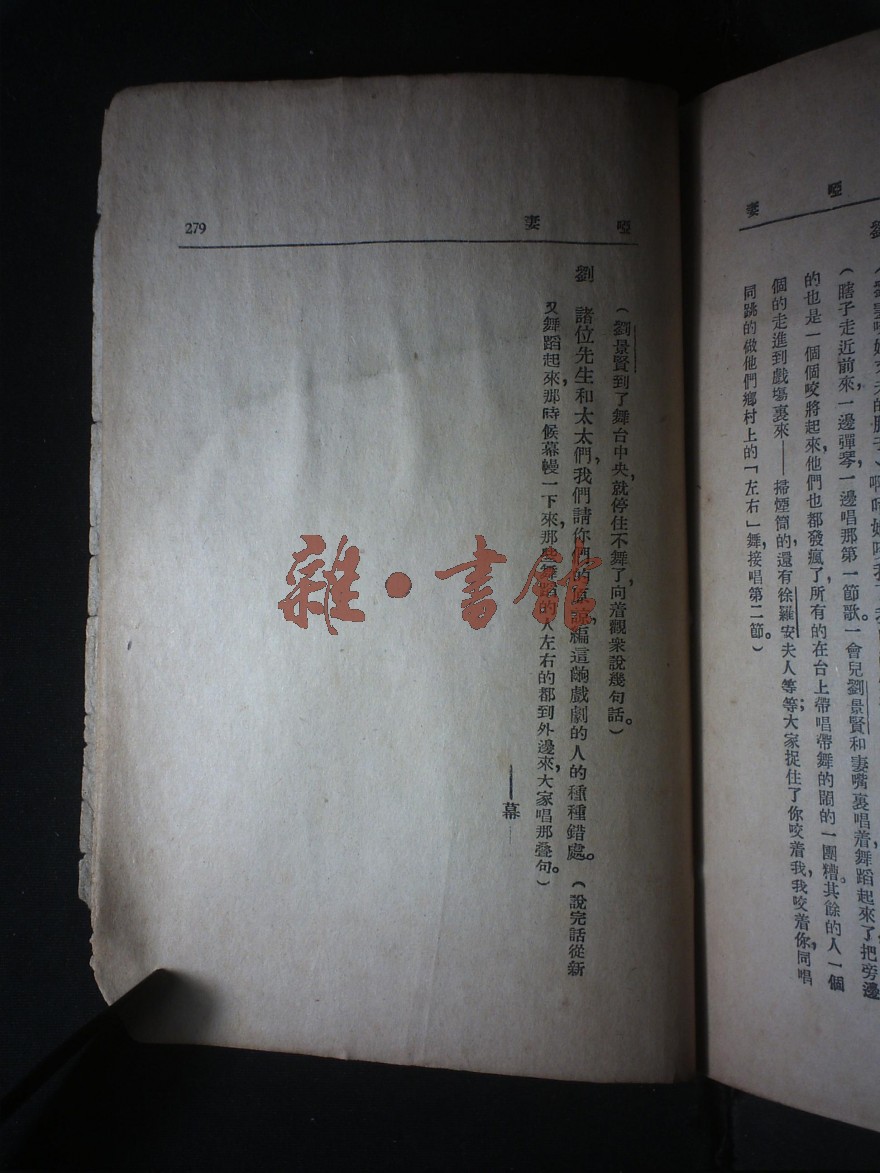 啞妻
（瞎子走近前來，一邊彈琴，一邊唱那第一節歌。一會兒劉景賢和妻嘴裏唱着，舞蹈起來了，把旁邊
的也是一個個咬將起來，他們也都發瘋了，所有的在台上帶唱帶舞的鬧的一團糟。其餘的人一個
個的走進到戲場裏來——掃煙筒的，還有徐羅安夫人等等；大家捉住了你咬着我，我咬着你，同唱
同跳的做他們鄉村上的「左右」舞，接唱第二節。）
啞妻
279
（劉景賢到了舞台中央，就停住不舞了，向着觀衆說幾句話。）
劉 諸位先生和太太們，我們請你們的原諒，編這齣戲劇的人的種種錯處。（說完話從新
又舞蹈起來，那時候幕幔一下來，那些舞蹈的人左右的都到外邊來，大家唱那叠句。）
——幕——
雜·書館